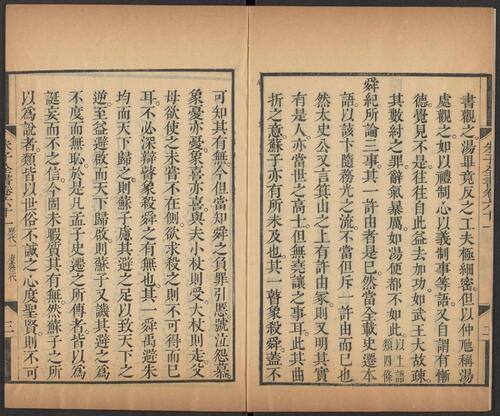 書觀之湯畢竟反之工夫極細密但以仲虺稱湯
處觀之如以禮制心以義制事等語又自謂有慚
德覺見不是往往自此益去加功如武王大故疎
其數紂之罪辭氣暴厲如湯便都不如此以上語類四條
舜紀所論三事其一許由者是已然當全載史遷本
語以該卞隨務光之流不當但斥一許由而已也
然太史公又言箕山之上有許由冢則又明其實
有是人亦當世之高士但無堯讓之事耳此其曲
折之意蘇子亦有所未及也其一瞽象殺舜蓋不
可知其有無今但當知舜之負罪引慝號泣怨慕
象憂亦憂象喜亦喜與夫小杖則受大杖則走父
母欲使之未嘗不在側欲求殺之則不可得而已
耳不必深辯瞽象殺舜之有無也其一舜禹避朱
均而天下歸之則蘇子慮其避之足以致天下之
逆至益避啟而天下歸啟則蘇子又譏其避之為
不度而無恥於是凡孟子史遷之所傳者皆以為
誕妄而不之信今固未暇質其有無然蘇子之所
以為說者類皆以世俗不誠之心度聖賢則不可
朱子全書卷六十一 歷代一 唐虞三代
三
二